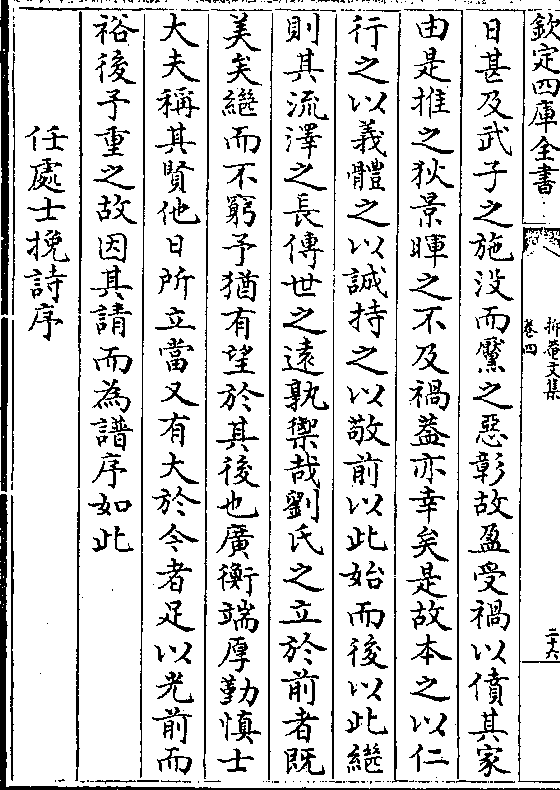 欽定四庫全書
抑菴文集
卷四
二十六
日甚及武子之施没而黶之惡彰故盈受禍以僨其家
由是推之狄景暉之不及禍葢亦幸矣是故本之以仁
行之以義體之以誠持之以敬前以此始而後以此繼
則其流澤之長傳世之遠孰禦哉劉氏之立於前者既
美矣繼而不窮予猶有望於其後也廣衡端厚勤慎士
大夫稱其賢他日所立當又有大於今者足以光前而
裕後予重之故因其請而為譜序如此
任處士挽詩序